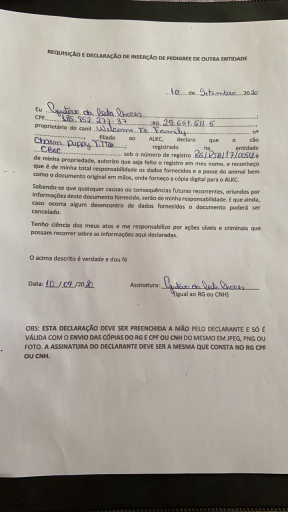 REQUISIÇÃO E DECLARAÇÃO DE INSERÇÃO DE PEDIGREE DE OUTRA ENTIDADE
10 de Setembro 2020
Eu Gustavo da
CPF RG
proprietário do canil Welcome To Family nº
filiado ao ALKC, declaro que o cão
Puppy registrado na entidade
CBKC sob o número de registro
de minha propriedade, autorizo que seja feito o registro em meu nome, e reconheço
que é de minha total responsabilidade os dados fornecidos e a posse do animal bem
como o documento original em mãos, onde forneço a cópia digital para o ALKC.
Sabendo-se que quaisquer causas ou consequências futuras recorrentes, oriundos por
informações deste documento fornecido, serão de minha responsabilidade. E que ainda,
caso ocorra algum desencontro de dados fornecidos o documento poderá ser
cancelado.
Tenho ciência dos meus atos e me responsabilizo por ações cíveis e criminais que
possam recorrer sobre as informações aqui declaradas.
O acima descrito é verdade e dou fé
Data: 10/09/2020 Assinatura: Gustavo da
(Igual ao RG ou CNH)
OBS: ESTA DECLARAÇÃO DEVE SER PREENCHIDA A MÃO PELO DECLARANTE E SÓ É
VÁLIDA COM O ENVIO DAS CÓPIAS DO RG E CPF OU CNH DO MESMO EM JPEG, PNG OU
FOTO. A ASSINATURA DO DECLARANTE DEVE SER A MESMA QUE CONSTA NO RG CPF
OU CNH.